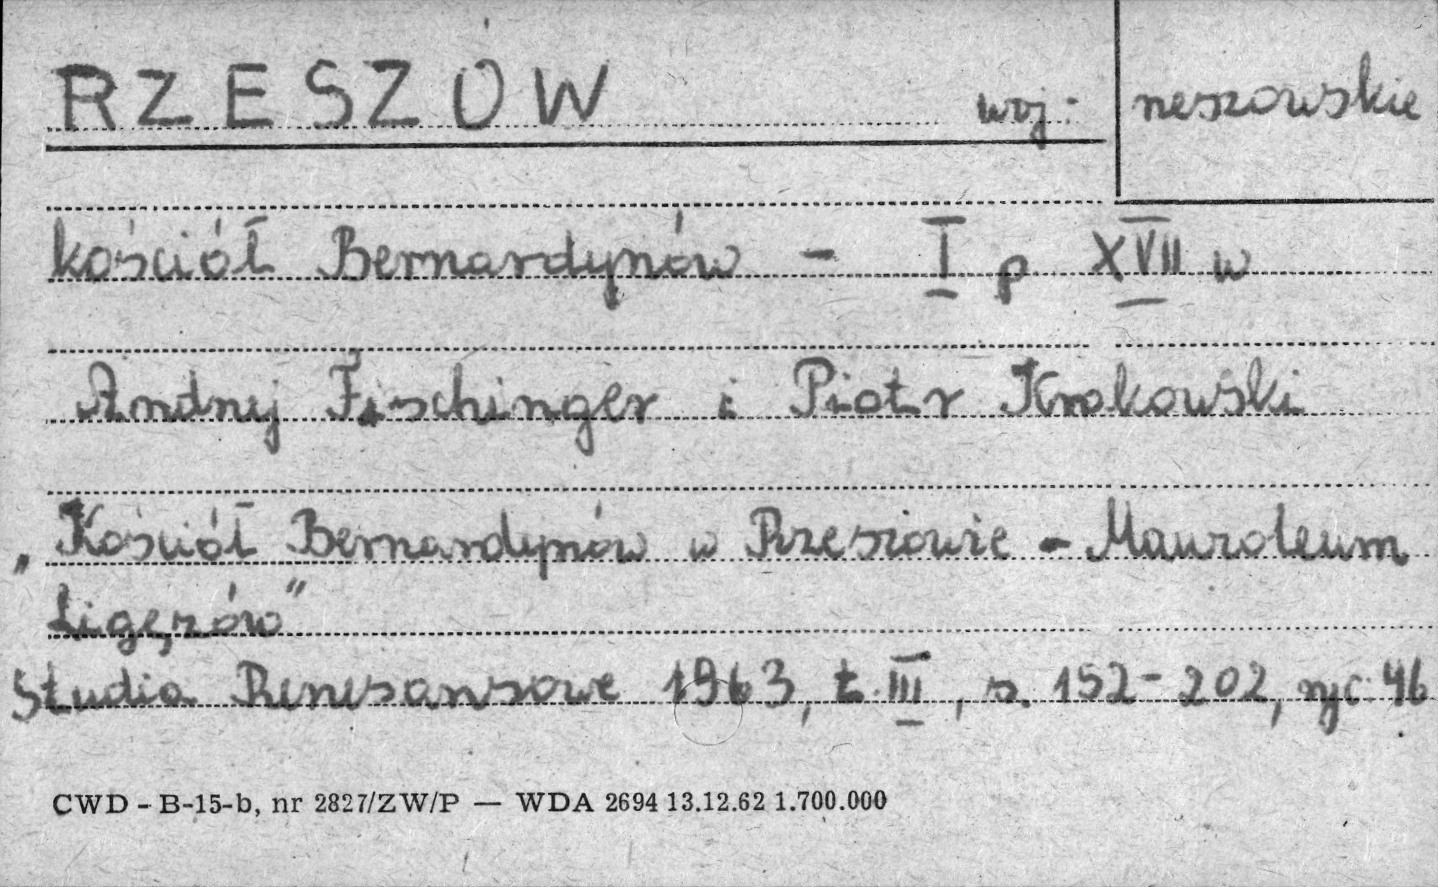 RZESZÓW woj: rzeszowskie
kościół Bernardynów - I p XVII w
Andrzej Fischinger i Piotr Krakowski
„Kościół Bernardynów w Rzeszowie - Mauzoleum
Ligęzów"
Studia Renesansowe 1963, t. III, s. 152-202, ryc. 46
CWD - B-15-b, nr 2827/ZW/P — WDA 2694 13.12.62 1.700.000